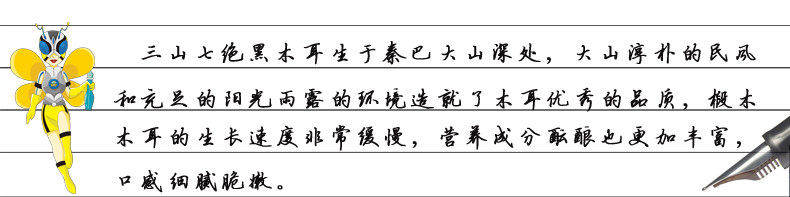 三山七绝黑木耳生于秦巴大山深处，大山淳朴的民风
和充足的阳光雨露的环境造就了木耳优秀的品质，椴木
木耳的生长速度非常缓慢，营养成分酝酿也更加丰富，
口感细腻脆嫩。